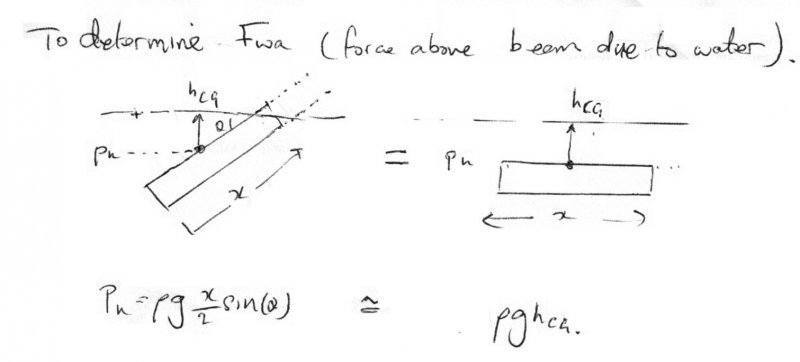 To determine Fwa (force above beam due to water).
hCG hCG
θ1
Pn = Pn
x x
Pn = ρg x/2 sin(θ) ≅ ρghCG.